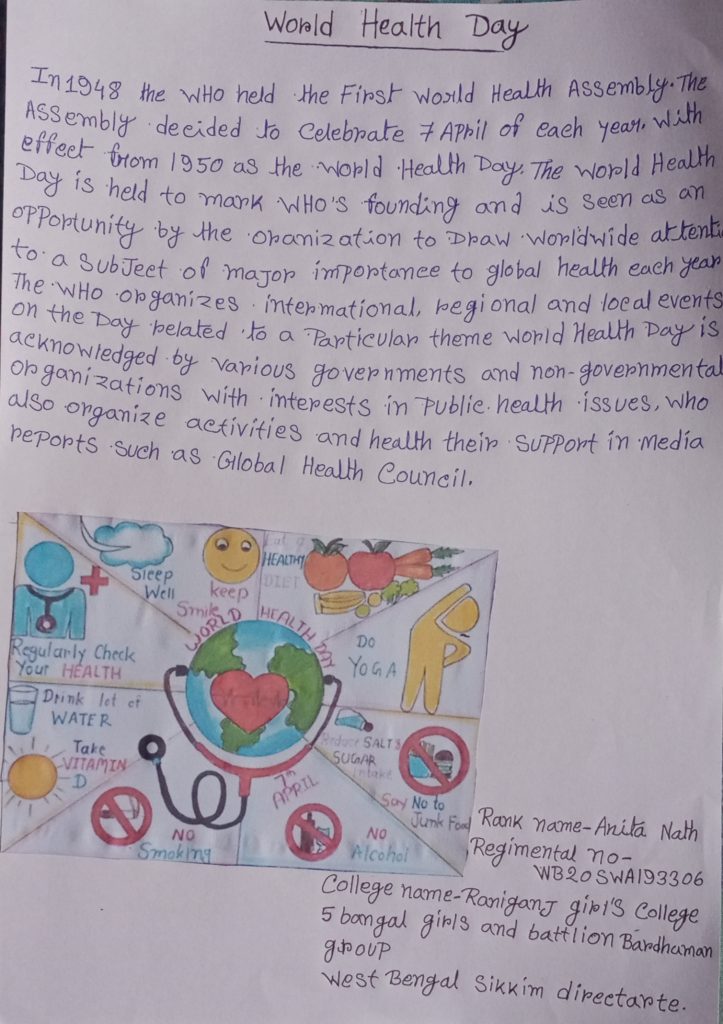 World Health Day
In 1948 the WHO held the First World Health Assembly. The
Assembly decided to Celebrate 7 April of each year. With
effect from 1950 as the World Health Day. The World Health
Day is held to mark WHO's founding and is seen as an
opportunity by the oranization to Draw worldwide attenti
to a Subject of major importance to global health each year
The WHO organizes international, regional and local events
on the Day related to a Particular theme World Health Day is
acknowledged by various governments and non-governmental
organizations with interests in Public health issues, who
also organize activities and health their Support in Media
reports such as Global Health Council.
Sleep
Well
keep
Smile
Eat a
HEALTHY
DIET
WORLD HEALTH DAY
Regularly Check
Your HEALTH
Do
YOGA
Drink lot of
WATER
Take
VITAMIN
D
Reduce SALT &
SUGAR
intake
Say No to
Junk Food
7th
APRIL
NO
Smoking
NO
Alcohol
Rank name-Anita Nath
Regimental no-
WB20SWA193306
College name-Raniganj girl's College
5 bangal girls and battlion Bardhaman
group
West Bengal Sikkim directarte.